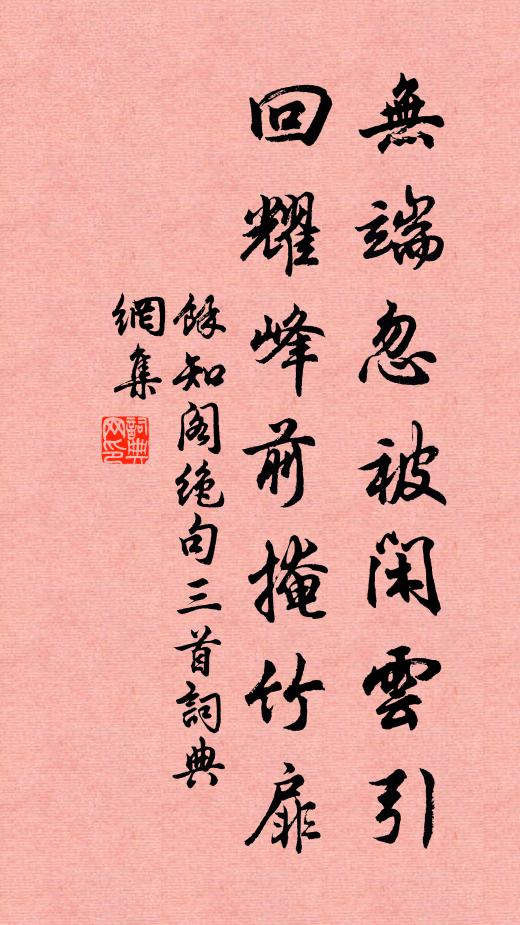 無端忽被閑雲引
回耀峰前掩竹扉
餘知阁绝句三首詞典
網集
詞典网印